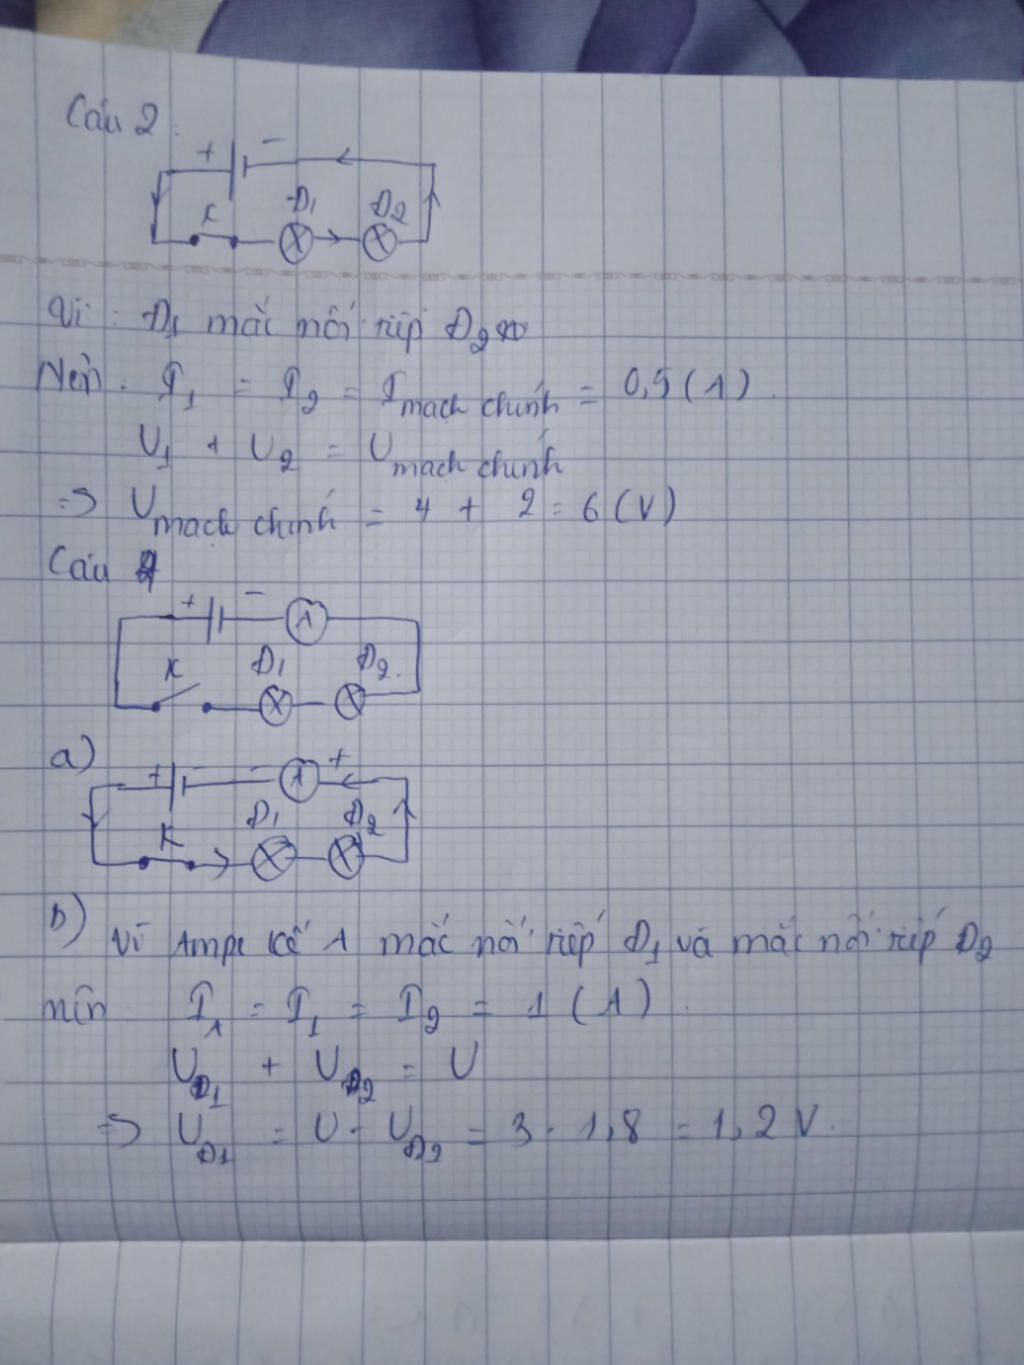 Câu 2:
+ −
K Đ1 Đ2
Vì: Đ1 mắc nối tiếp Đ2
Nên. I1 = I2 = I mạch chính = 0,5 (A).
U1 + U2 = U mạch chính
=> U mạch chính = 4 + 2 = 6 (V)
Câu
+ − A
K Đ1 Đ2.
a)
+ − − A +
K Đ1 Đ2
b) Vì Ampe kế A mắc nối tiếp Đ1 và mắc nối tiếp Đ2
nên IA = I1 = I2 = 1 (A).
UĐ1 + UĐ2 = U
=> UĐ1 = U - UĐ2 = 3 - 1,8 = 1,2 V.